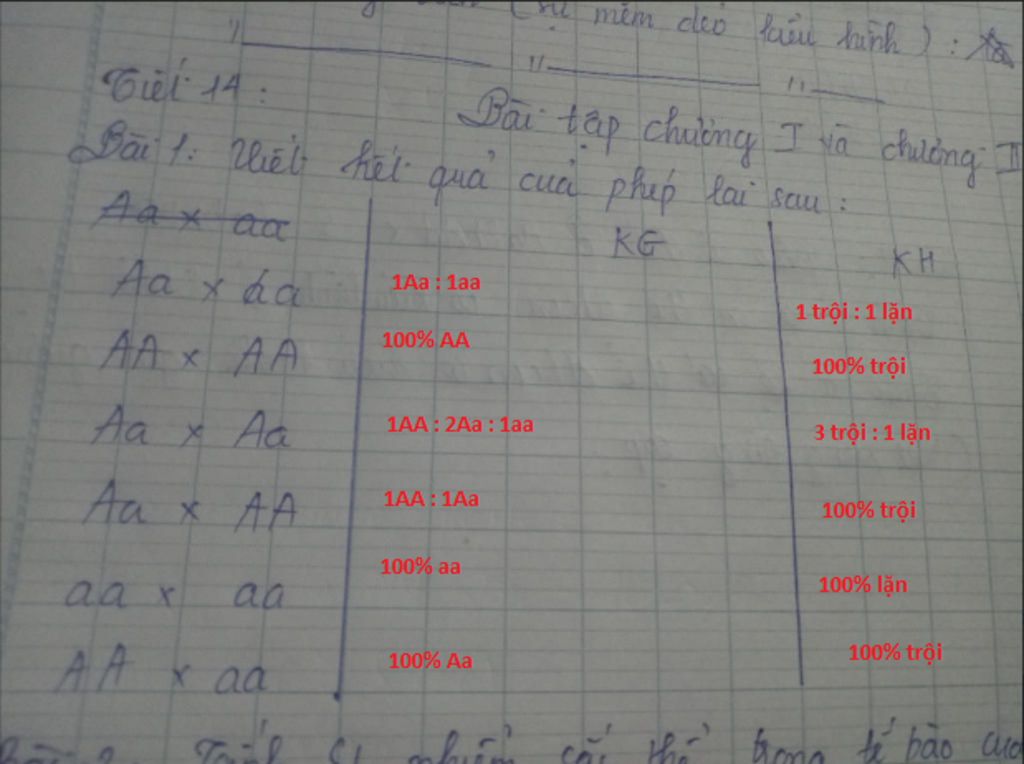 (sự mềm dẻo kiểu hình) :
Tiết 14 :
Bài tập chương I và chương II
Bài 1: Viết kết quả của phép lai sau :
Aa x aa
KG
KH
Aa x aa 1Aa : 1aa 1 trội : 1 lặn
AA x AA 100% AA 100% trội
Aa x Aa 1AA : 2Aa : 1aa 3 trội : 1 lặn
Aa x AA 1AA : 1Aa 100% trội
aa x aa 100% aa 100% lặn
AA x aa 100% Aa 100% trội
trong tế bào